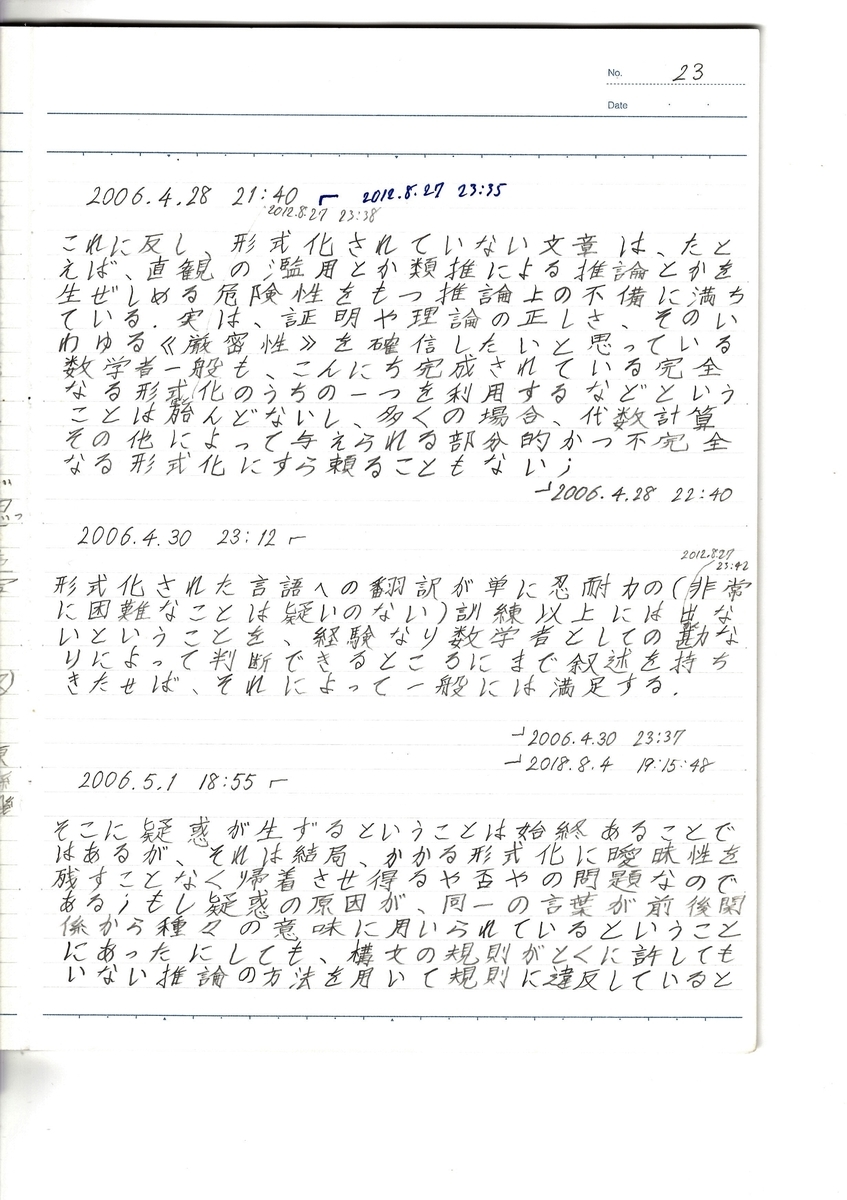 No. 23
Date
2006.4.28 21:40 ┌ 2012.8.27 23:35
2012.8.27 23:38
これに反し、形式化されていない文章は、たと
えば、直観の濫用とか類推による推論とかを
生ぜしめる危険性をもつ推論上の不備に満ち
ている.実は、証明や理論の正しさ、そのい
わゆる《厳密性》を確信したいと思っている
数学者一般も、こんにち完成されている完全
なる形式化のうちの一つを利用するなどという
ことは殆んどないし、多くの場合、代数計算
その他によって与えられる部分的かつ不完全
なる形式化にすら頼ることもない;
┘2006.4.28 22:40
2006.4.30 23:12 ┌
2012.8.27
23:42
形式化された言語への翻訳が単に忍耐力の(非常
に困難なことは疑いのない)訓練以上には出な
いということを、経験なり数学者としての勘な
りによって判断できるところにまで叙述を持ち
きたせば、それによって一般には満足する.
┘2006.4.30 23:37
┘2018.8.4 19:15:48
2006.5.1 18:55 ┌
そこに疑惑が生ずるということは始終あることで
はあるが、それは結局、かかる形式化に曖昧性を
残すことなく帰着させ得るや否やの問題なので
ある;もし疑惑の原因が、同一の言葉が前後関
係から種々の意味に用いられているということ
にあったにしても、構文の規則がとくに許しても
いない推論の方法を用いて規則に違反していると